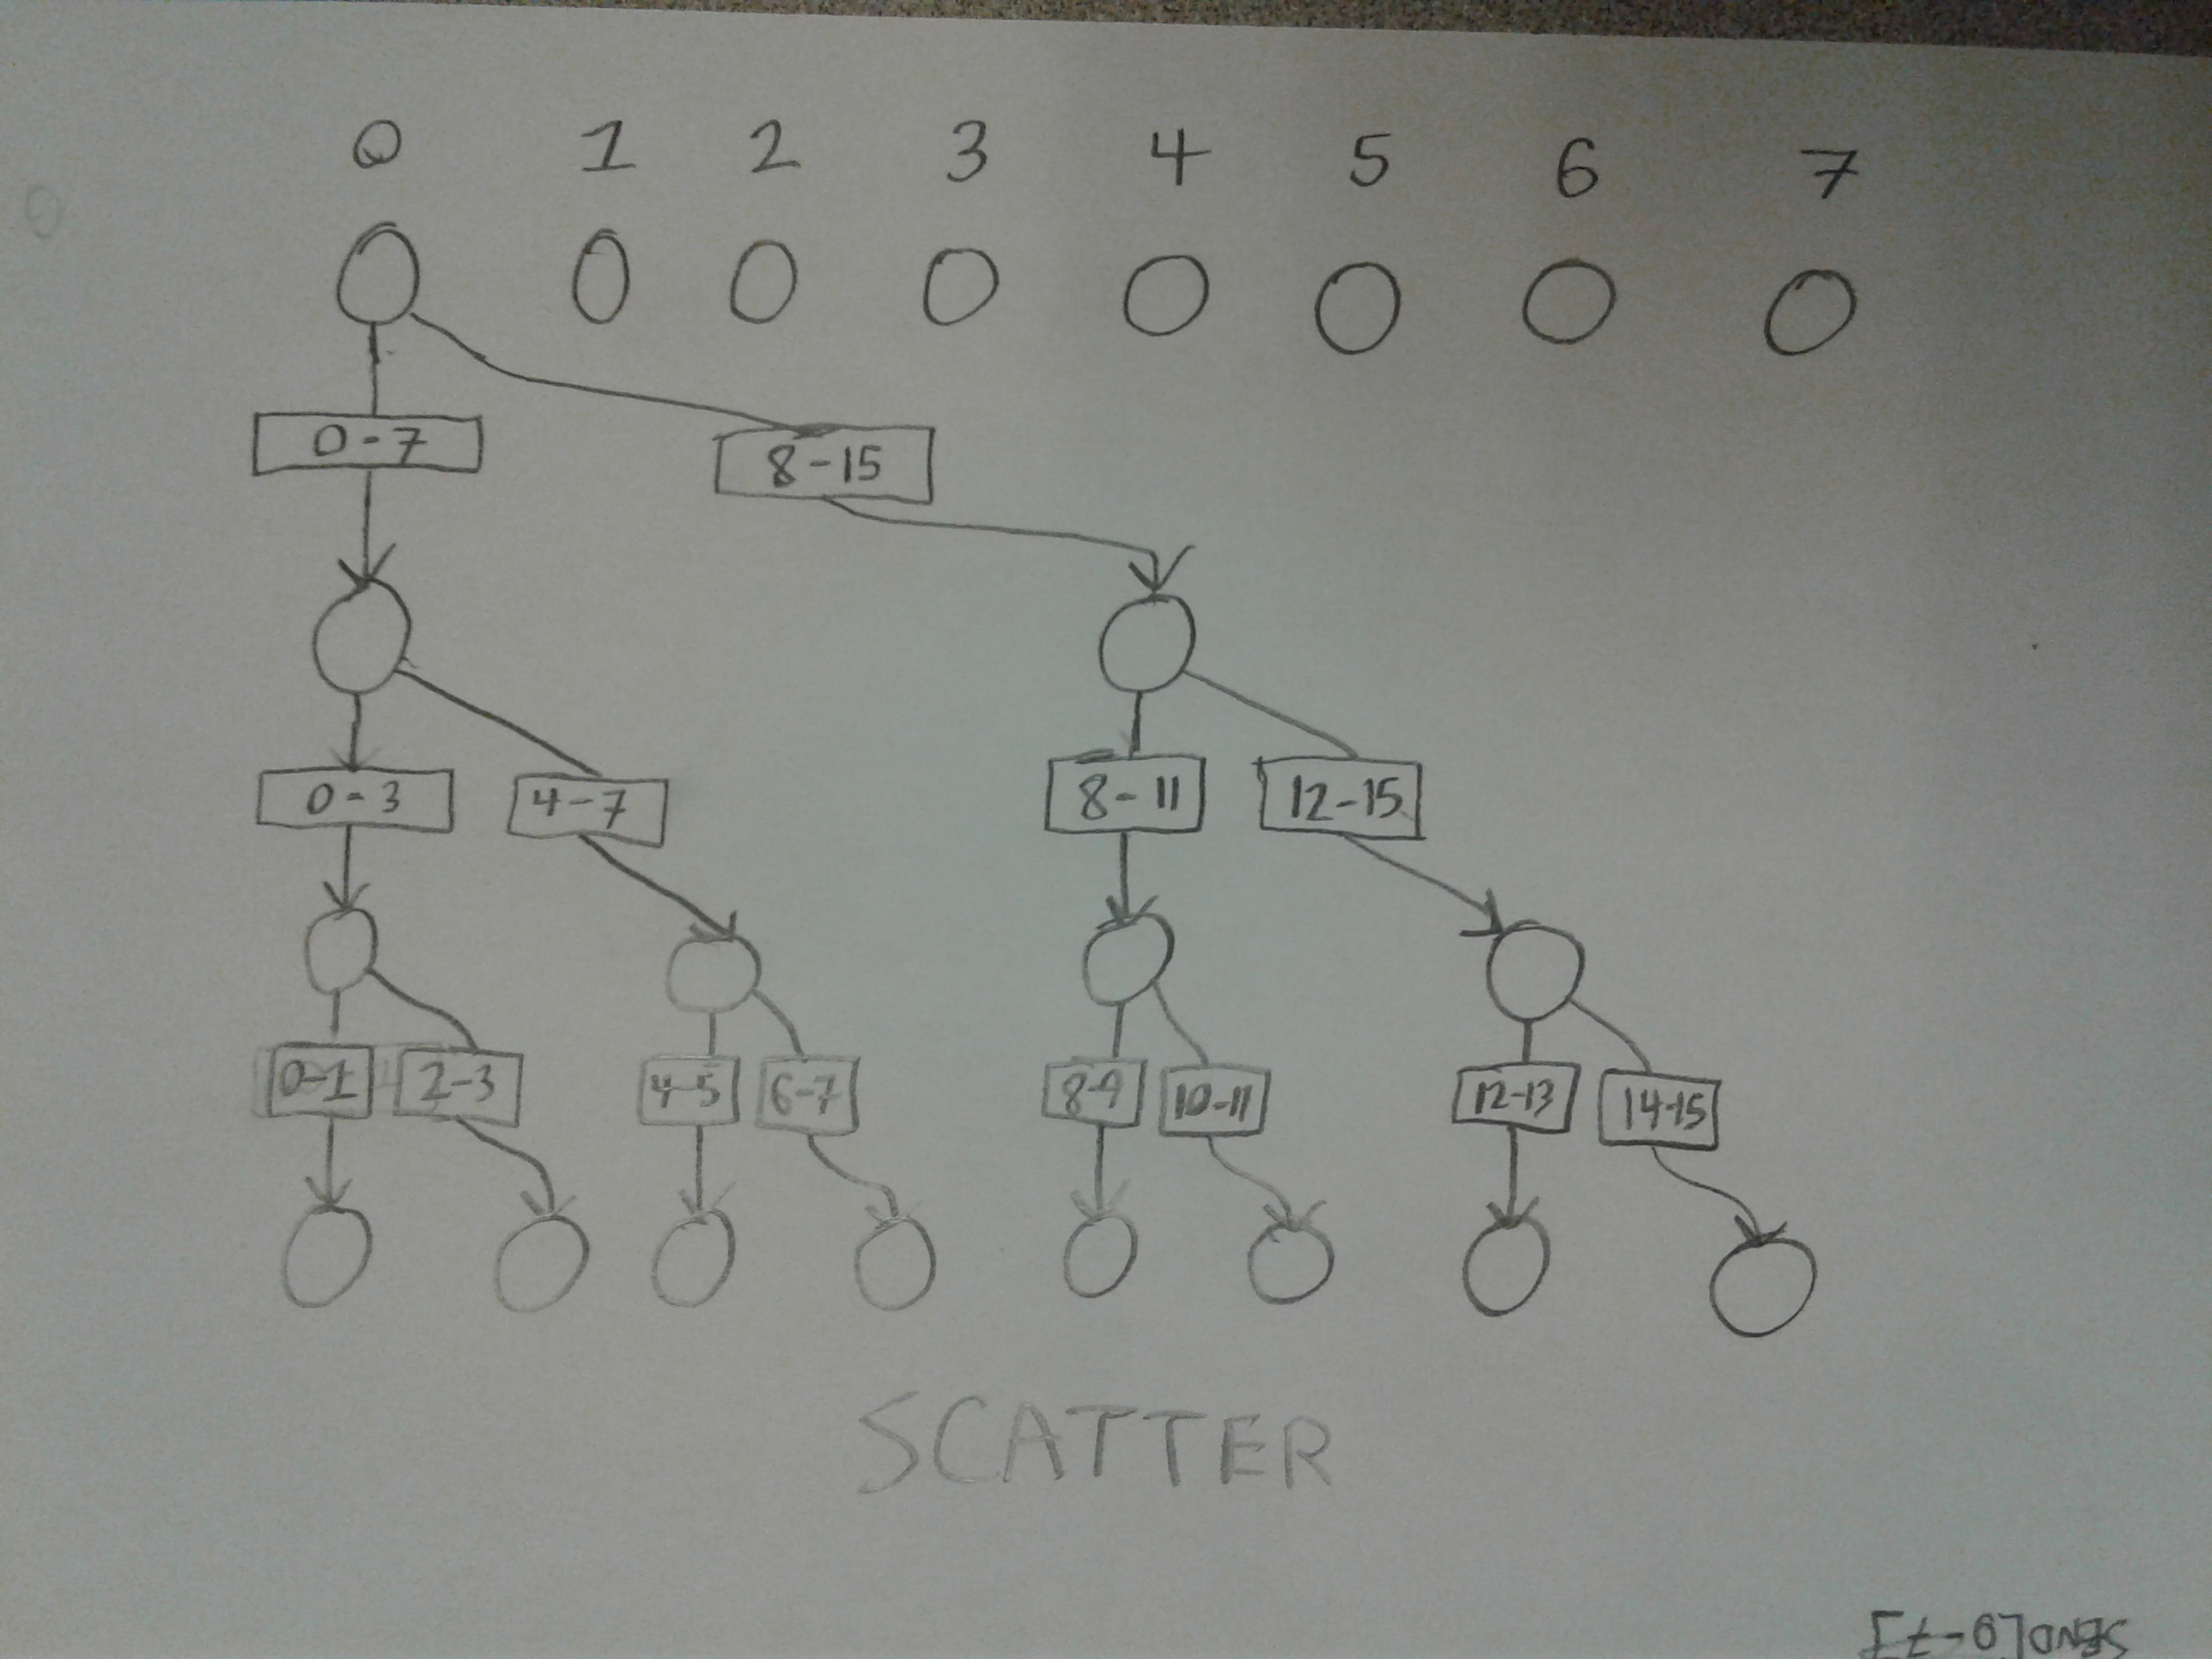 0 1 2 3 4 5 6 7
0-7 8-15
0-3 4-7 8-11 12-15
0-1 2-3 4-5 6-7 8-9 10-11 12-13 14-15
SCATTER